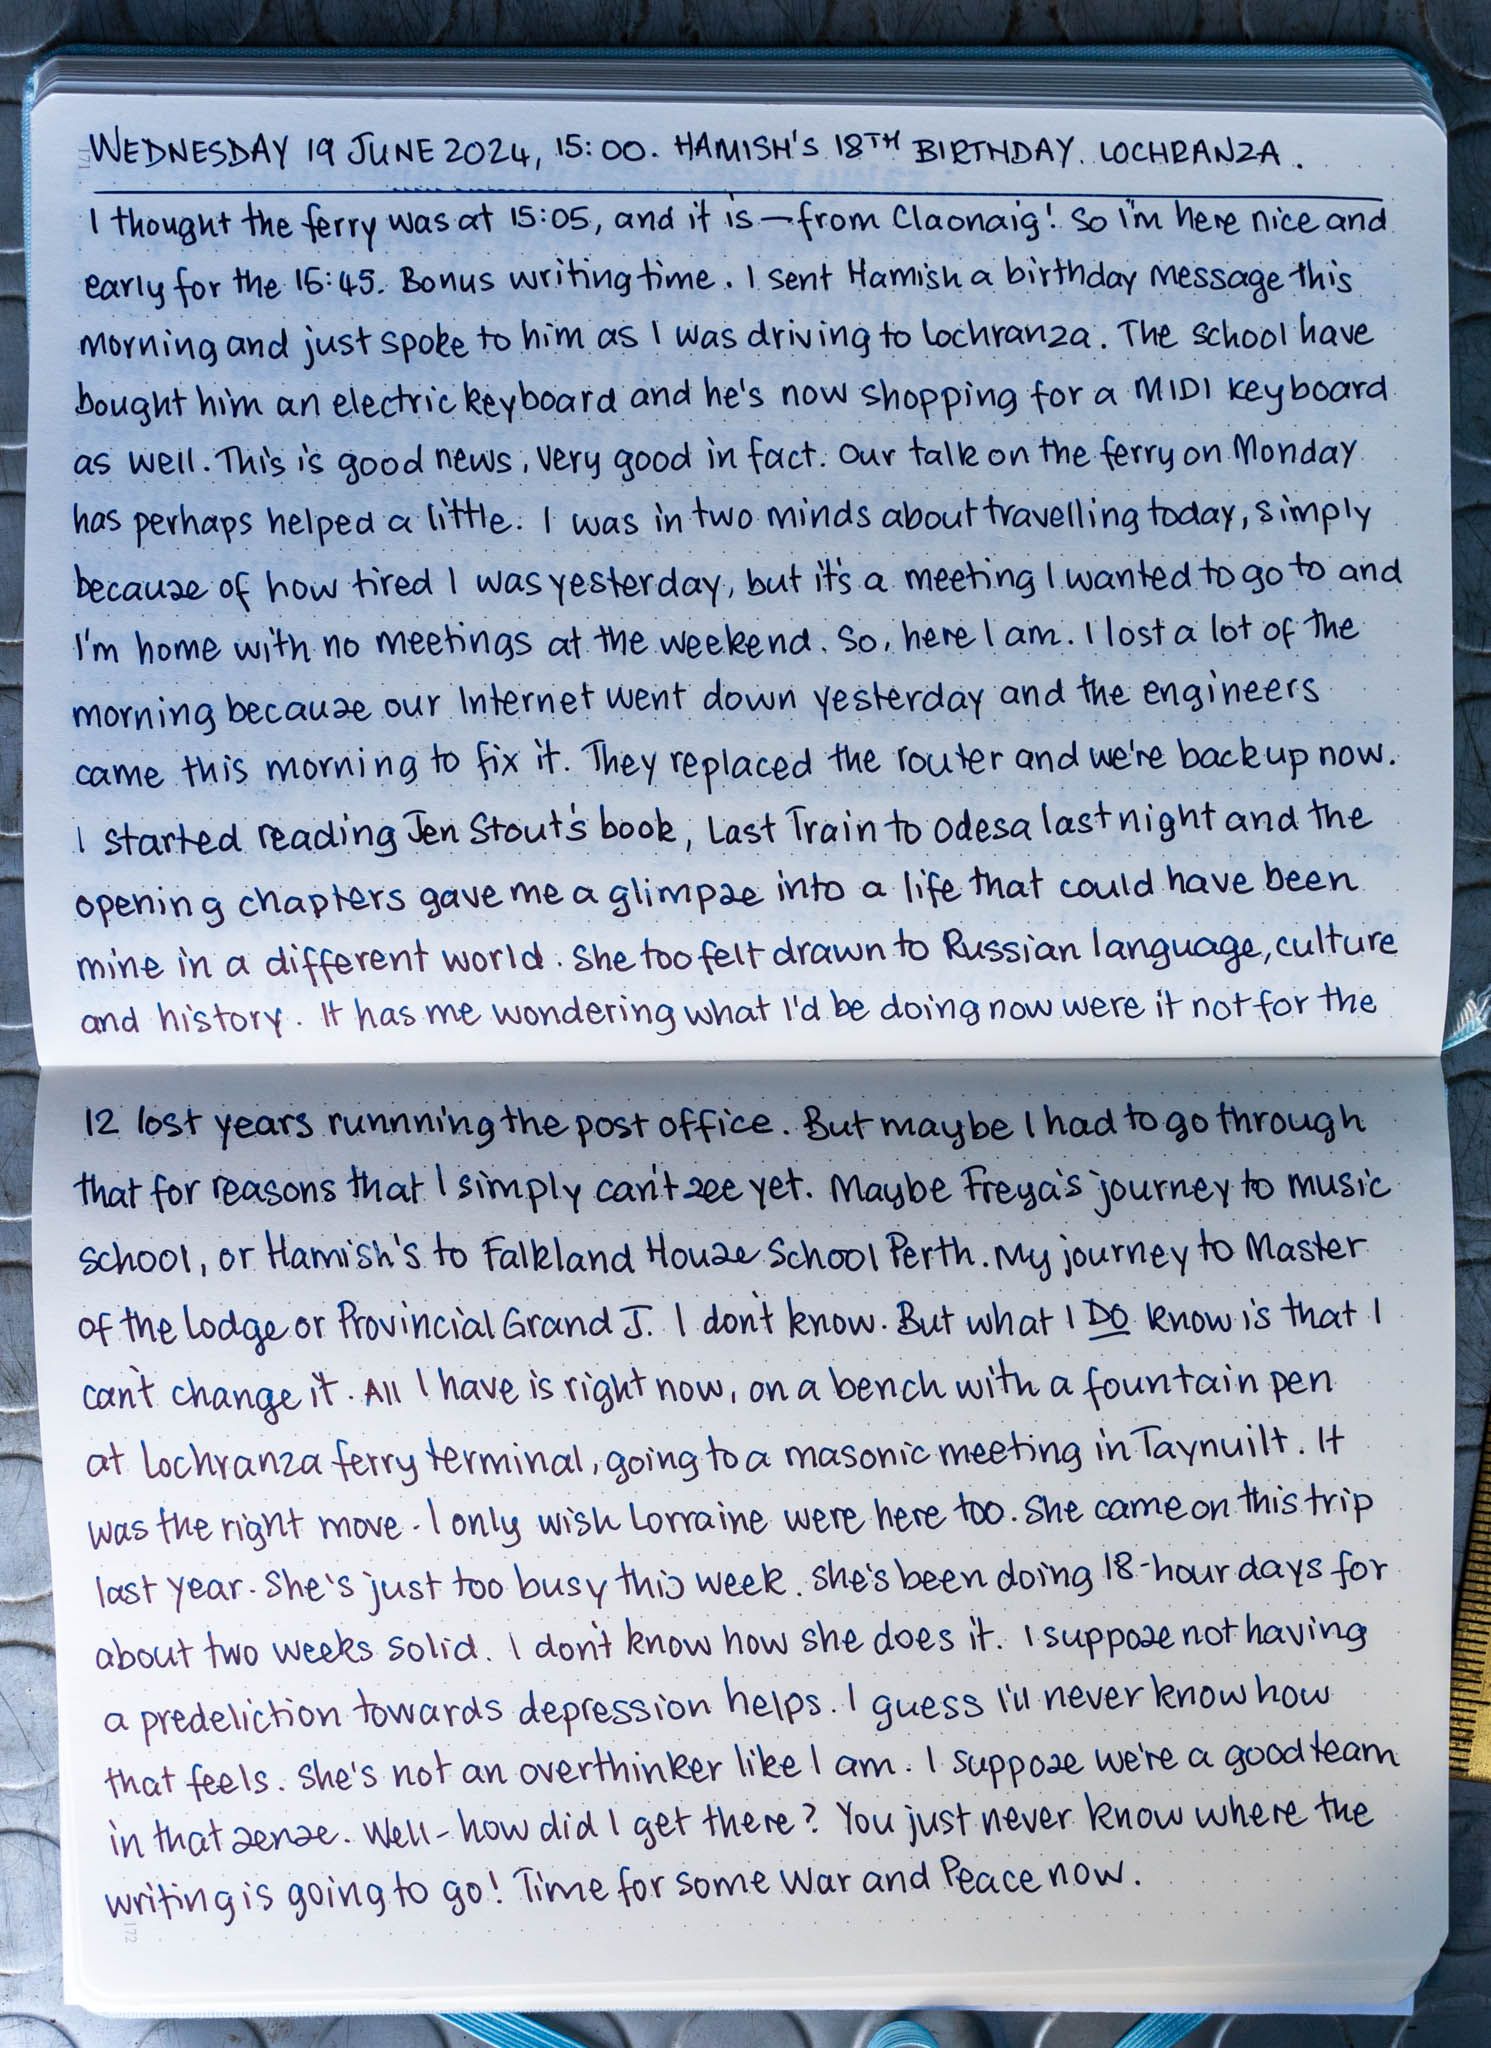 WEDNESDAY 19 JUNE 2024, 15:00. HAMISH'S 18TH BIRTHDAY. LOCHRANZA.
I thought the ferry was at 15:05, and it is – from Claonaig! So I'm here nice and
early for the 15:45. Bonus writing time. I sent Hamish a birthday message this
morning and just spoke to him as I was driving to Lochranza. The school have
bought him an electric keyboard and he's now shopping for a MIDI keyboard
as well. This is good news, very good in fact. Our talk on the ferry on Monday
has perhaps helped a little. I was in two minds about travelling today, simply
because of how tired I was yesterday, but it's a meeting I wanted to go to and
I'm home with no meetings at the weekend. So, here I am. I lost a lot of the
morning because our Internet went down yesterday and the engineers
came this morning to fix it. They replaced the router and we're back up now.
I started reading Jen Stout's book, Last Train to Odesa last night and the
opening chapters gave me a glimpse into a life that could have been
mine in a different world. She too felt drawn to Russian language, culture
and history. It has me wondering what I'd be doing now were it not for the
12 lost years runnning the post office. But maybe I had to go through
that for reasons that I simply can't see yet. Maybe Freya's journey to music
school, or Hamish's to Falkland House School Perth. My journey to Master
of the Lodge or Provincial Grand J. I don't know. But what I DO know is that I
can't change it. All I have is right now, on a bench with a fountain pen
at Lochranza ferry terminal, going to a masonic meeting in Taynuilt. It
was the right move. I only wish Lorraine were here too. She came on this trip
last year. She's just too busy this week. She's been doing 18-hour days for
about two weeks solid. I don't know how she does it. I suppose not having
a predeliction towards depression helps. I guess I'll never know how
that feels. She's not an overthinker like I am. I suppose we're a good team
in that sense. Well – how did I get there? You just never know where the
writing is going to go! Time for some War and Peace now.
171
172